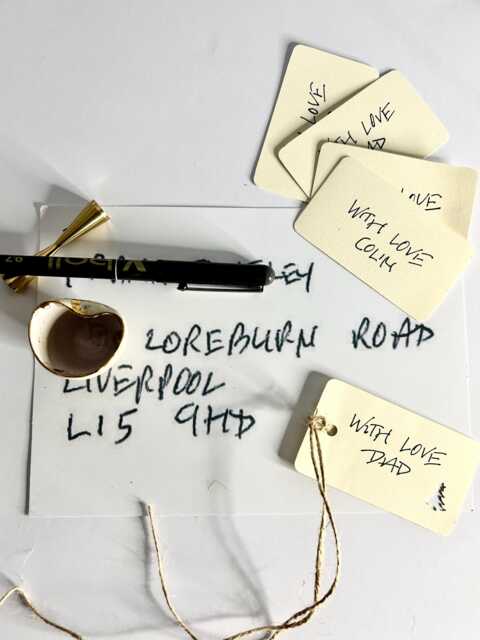 LOVE
LOVE
LOVE
WITH LOVE
COLIN
LOREBURN ROAD
LIVERPOOL
L15 9HD
WITH LOVE
DAD